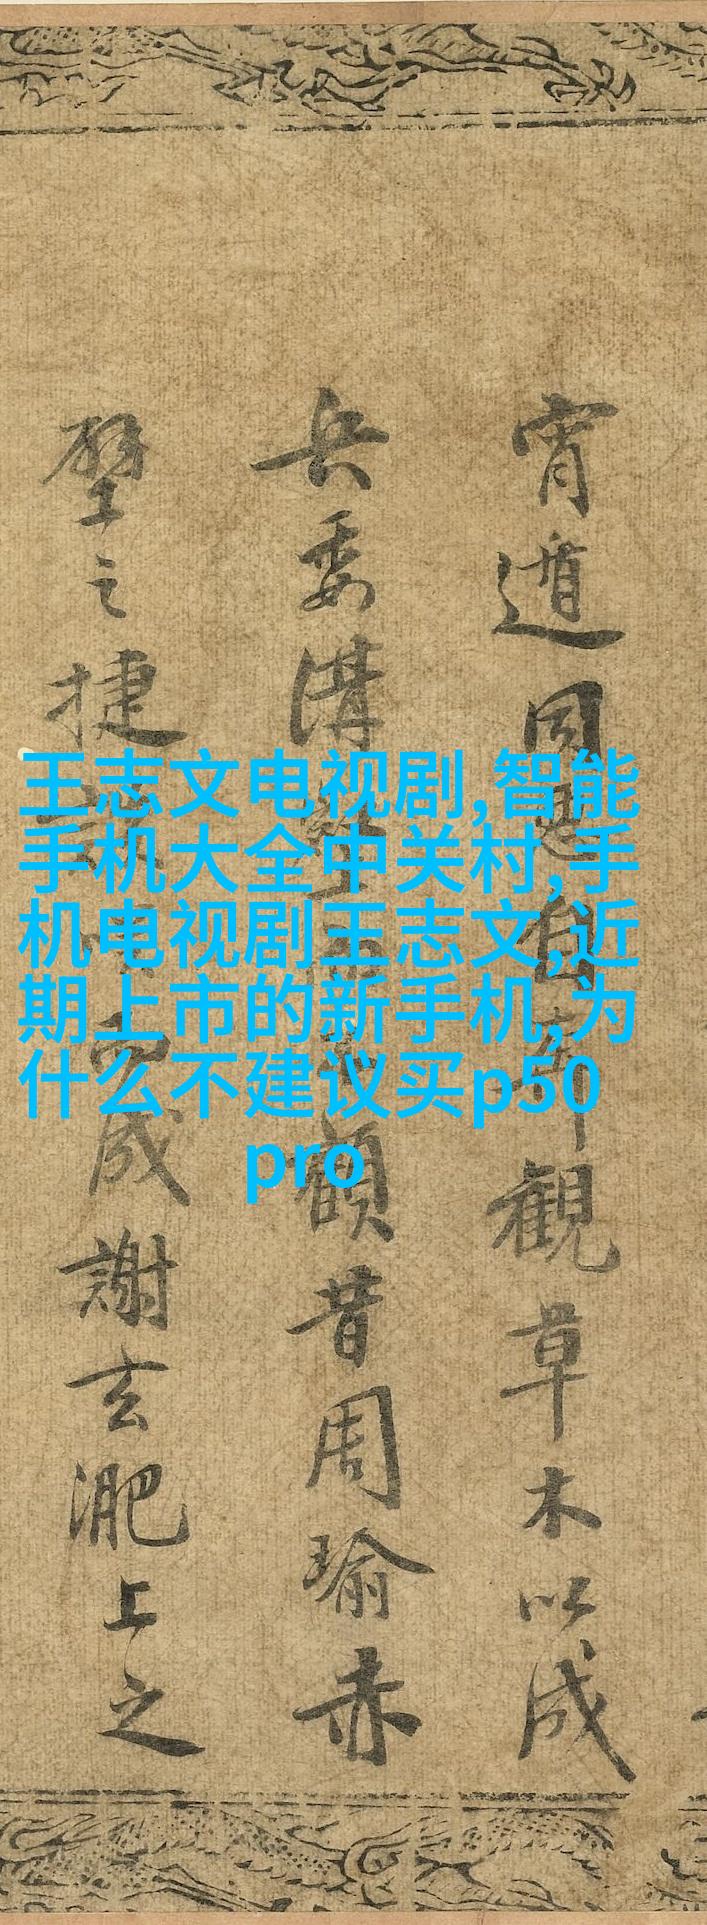 王志文电视剧,智能
手机大全中关村,手
机电视剧王志文,近
期上市的新手机,为
什么不建议买p50
pro
宵遁同惡自奔觀草木以成
兵委溝壑而不顧昔周瑜赤
壁之捷談笑而成謝玄淝上之